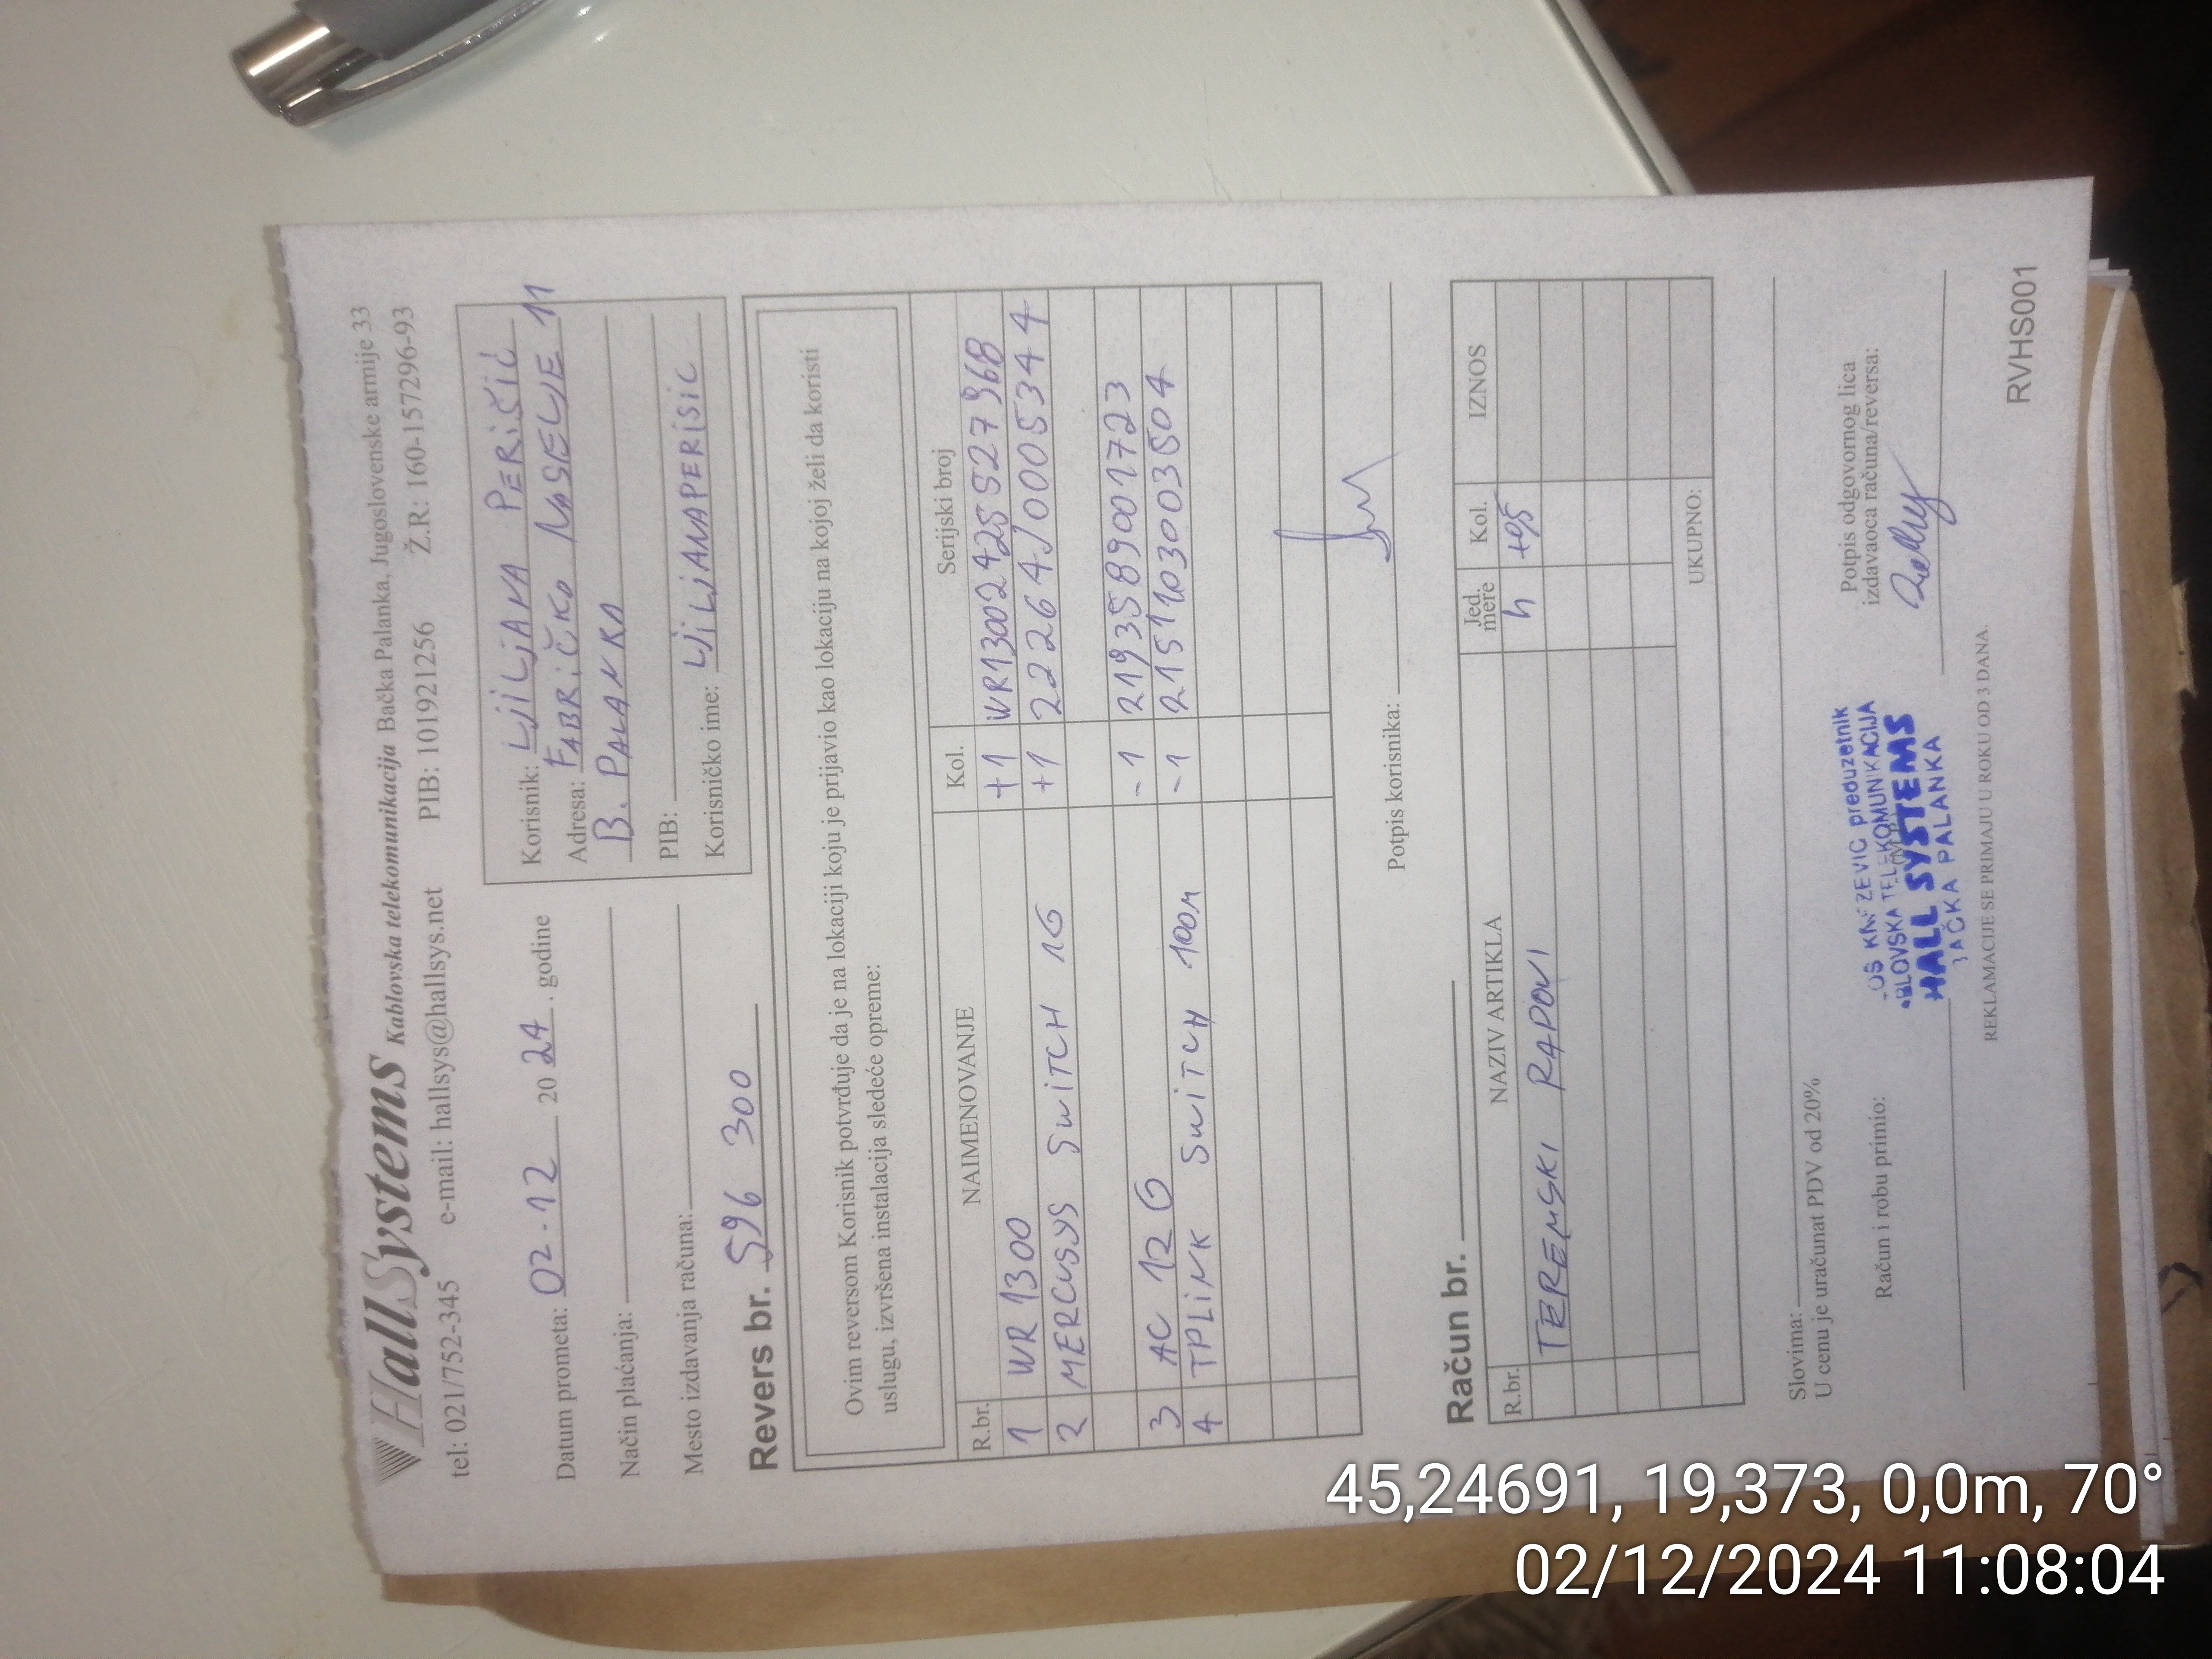 HallSystems Kablovska telekomunikacija Bačka Palanka, Jugoslovenske armije 33
tel: 021/752-345 e-mail: hallsys@hallsys.net PIB: 101921256 Ž.R: 160-157296-93
Datum prometa: 02-12 2024. godine
Način plaćanja:
Mesto izdavanja računa:
Korisnik: LJILJANA PERIŠIĆ
Adresa: FABRIČKO NASELJE 11
B. PALANKA
PIB:
Korisničko ime: LJILJANAPERISIC
Revers br. 596 300
Ovim reversom Korisnik potvrđuje da je na lokaciji koju je prijavio kao lokaciju na kojoj želi da koristi
uslugu, izvršena instalacija sledeće opreme:
R.br. NAIMENOVANJE Kol. Serijski broj
1 WR 1300 +1 WR13002425527968
2 MERCUSYS SWITCH 1G +1 22264J0005344
3 AC 12 G -1 2193589001723
4 TPLINK SWITCH 100M -1 2151103003504
Potpis korisnika:
Račun br.
R.br. NAZIV ARTIKLA Jed. mere Kol. IZNOS
TERENSKI RADOVI h +0,5
UKUPNO:
Slovima:
U cenu je uračunat PDV od 20%
Račun i robu primio:
Potpis odgovornog lica
izdavaoca računa/reversa:
preduzetnik
TELEKOMUNIKACIJA
HALL SYSTEMS
BAČKA PALANKA
REKLAMACIJE SE PRIMAJU U ROKU OD 3 DANA.
RVHS001
45,24691, 19,373, 0,0m, 70°
02/12/2024 11:08:04